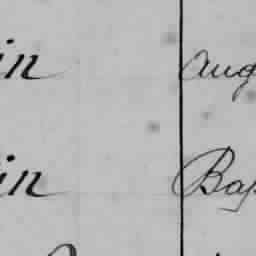 in Aug
in Bap